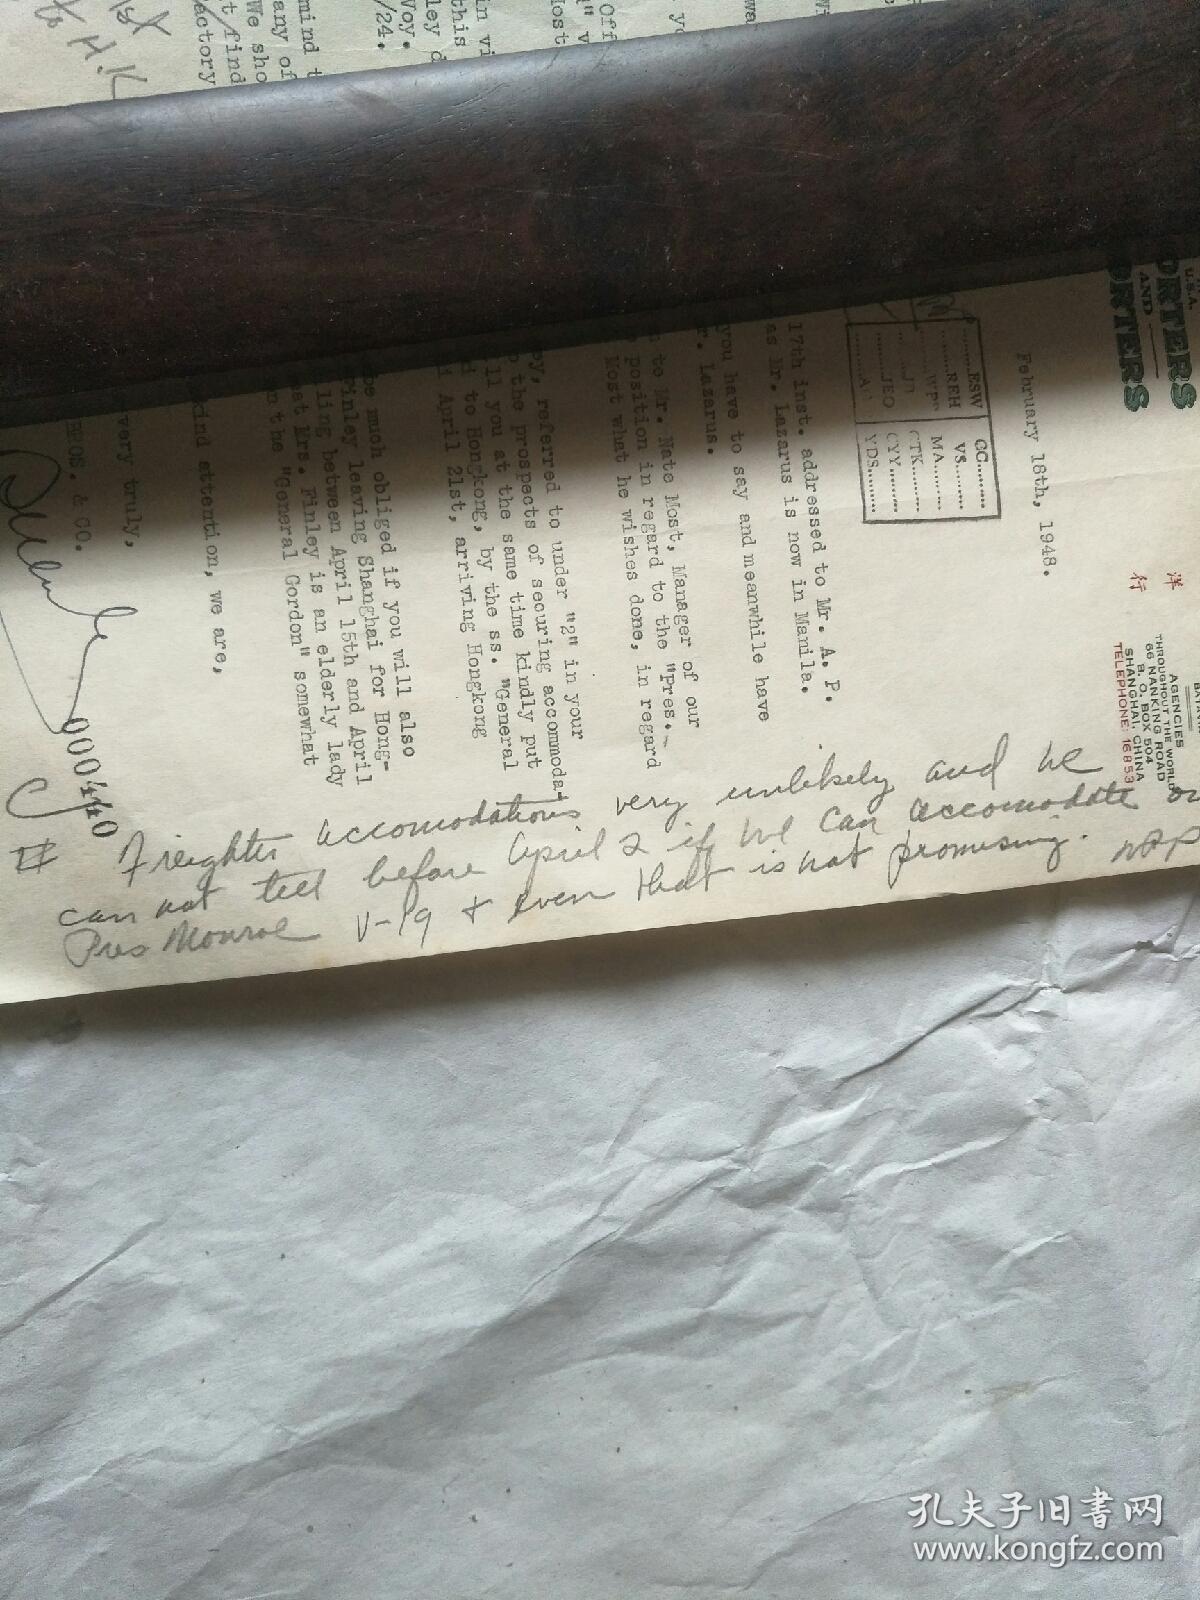 U.S.A.
ORTERS
AND
ORTERS
洋
行
AGENCIES
THROUGHOUT THE WORLD
66 NANKING ROAD
B. O. BOX 504
SHANGHAI, CHINA
TELEPHONE: 16853
February 18th, 1948.
ESW CC
REH VS
MA
CTK
JEO CYY
YDS
17th inst. addressed to Mr. A. P.
as Mr. Lazarus is now in Manila.
you have to say and meanwhile have
r. Lazarus.
to Mr. Nate Most, Manager of our
position in regard to the "Pres.
Most what he wishes done, in regard
py, referred to under "2" in your
o the prospects of securing accommoda-
ll you at the same time kindly put
d to Hongkong, by the ss. "General
April 21st, arriving Hongkong
be much obliged if you will also
Finley leaving Shanghai for Hong-
ling between April 15th and April
at Mrs. Finley is an elderly lady
n the "General Gordon" somewhat
kind attention, we are,
very truly,
BROS. & CO.
000440
# Freighter accomodations very unlikely and we
can not tell before April 2 if we can accomodate on
Pres Monroe V-19 & even that is not promising.
mind t
any of
We sho
t find
ectory
in vi
this
ley d
Voy.
/24.
Off
Most
H.K
孔夫子旧书网
www.kongfz.com